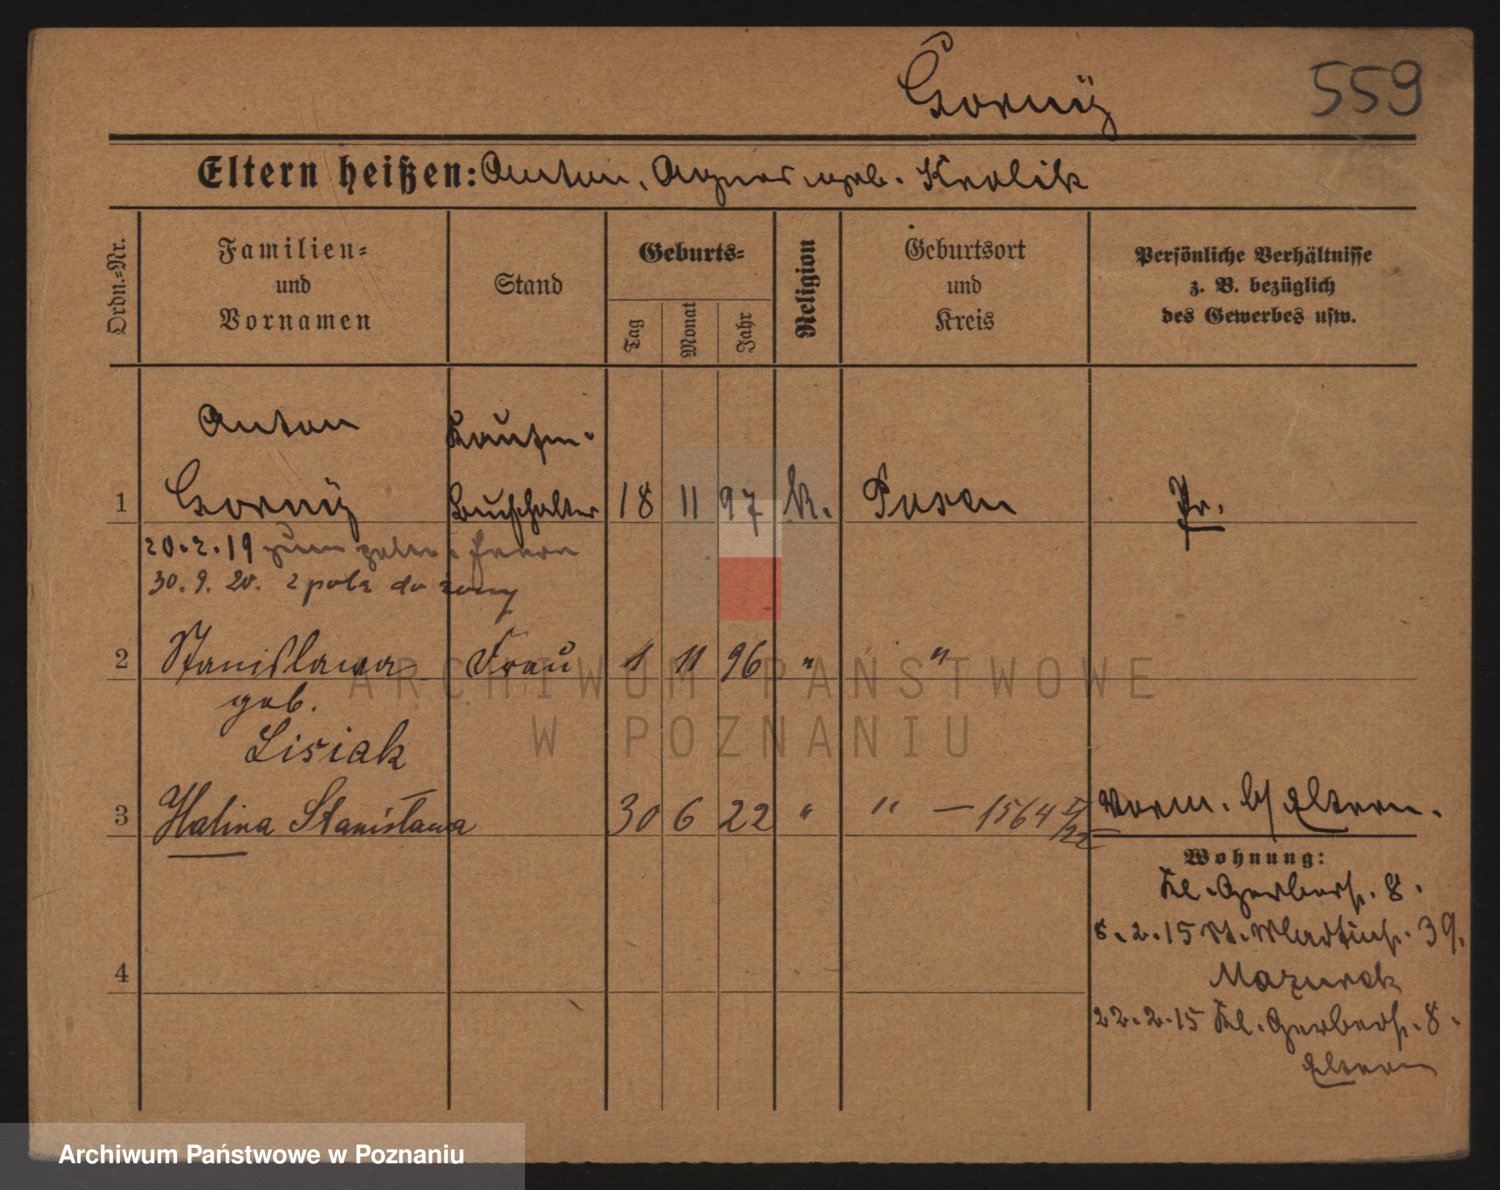 Gorný
559
Eltern heißen: Anton, Agnes geb. Krolik
Ordn.=Nr.
Familien=
und
Vornamen
Stand
Geburts=
Tag
Monat
Jahr
Religion
Geburtsort
und
Kreis
Persönliche Verhältnisse
z. B. bezüglich
des Gewerbes usw.
Anton Kaufm.
1 Gorný Buchhalter 18 11 97 k. Posen Pr.
20.2.19 zum Heere
30. 9. 20. z pola do żony
2 Stanislawa Frau 1 11 96 " "
geb.
Lisiak
3 Halina Stanisława 30 6 22 " " — 1564 I/22 Vorm. b/ Eltern.
Wohnung:
Kl. Gerberstr. 8.
8.2.15 St. Martinstr. 39.
Mazurek
4
22.2.15 Kl. Gerberstr. 8.
Eltern
ARCHIWUM PAŃSTWOWE
W POZNANIU
Archiwum Państwowe w Poznaniu